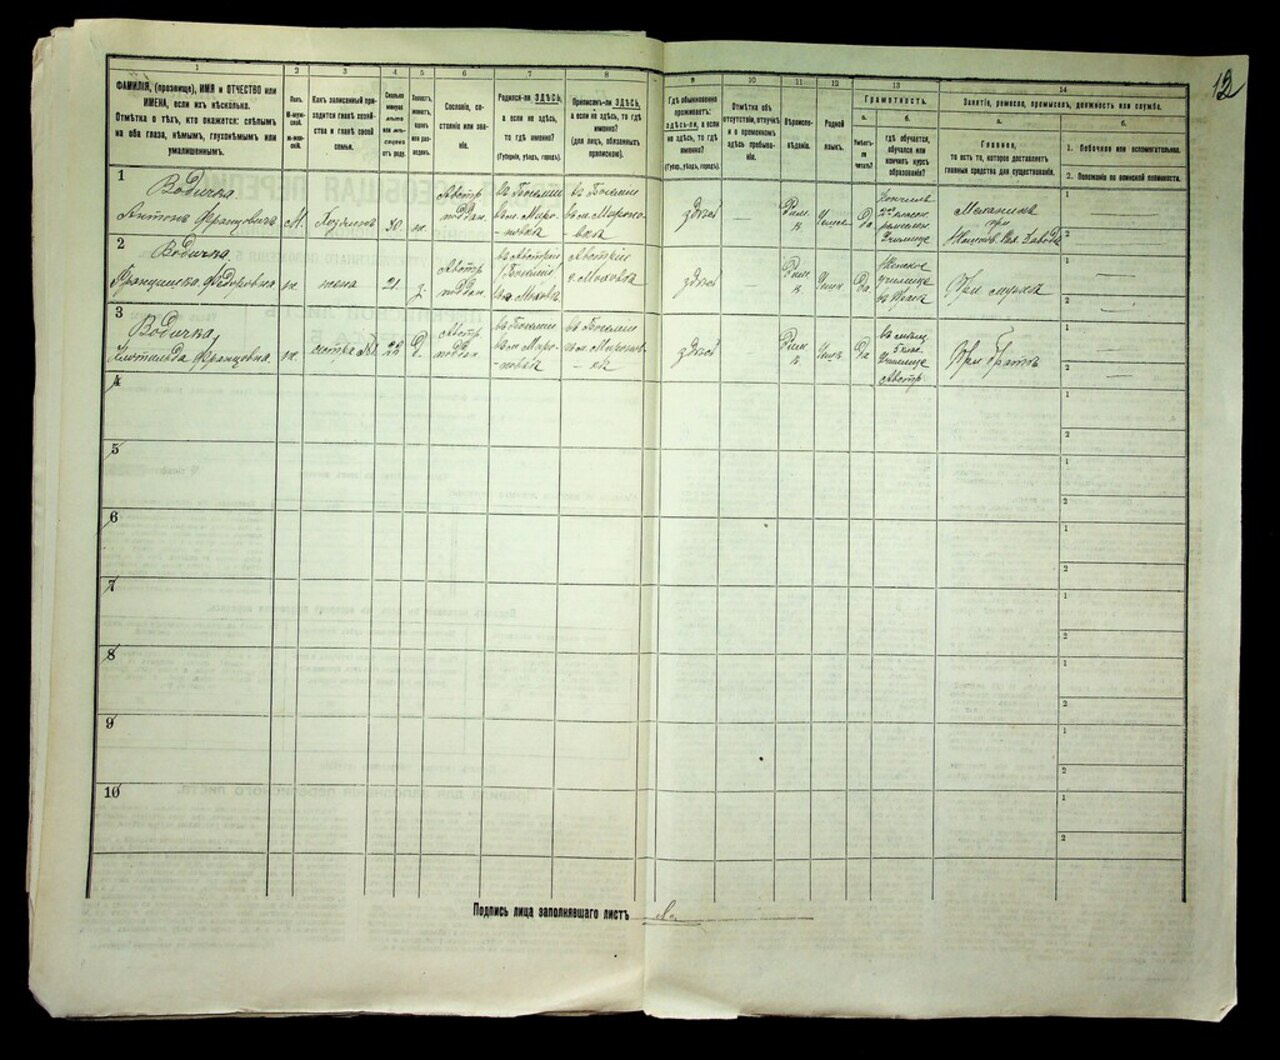 12
1
2
3
4
5
6
7
8
9
10
11
12
13
14
ФАМИЛІЯ, (прозвище), ИМЯ и ОТЧЕСТВО или
ИМЕНА, если ихъ нѣсколько.
Отмѣтка о тѣхъ, кто окажется: слѣпымъ
на оба глаза, нѣмымъ, глухонѣмымъ или
умалишеннымъ.
Полъ.
М-муж-
ской.
Ж-жен-
скій.
Какъ записанный при-
ходится главѣ хозяй-
ства и главѣ своей
семьи.
Сколько
минуло
лѣтъ
или мѣ-
сяцевъ
отъ роду.
Холостъ,
женатъ,
вдовъ
или раз-
веденъ.
Сословіе, со-
стояніе или зва-
ніе.
Родился-ли ЗДѢСЬ,
а если не здѣсь,
то гдѣ именно?
(Губернія, уѣздъ, городъ).
Приписанъ-ли ЗДѢСЬ,
а если не здѣсь, то гдѣ
именно?
(для лицъ, обязанныхъ
припискою).
Гдѣ обыкновенно
проживаетъ:
здѣсь-ли, а если
не здѣсь, то гдѣ
именно?
(Губер., уѣздъ, городъ).
Отмѣтка объ
отсутствіи, отлучкѣ
и о временномъ
здѣсь пребыва-
ніи.
Вѣроиспо-
вѣданіе.
Родной
языкъ.
Грамотность.
а.
Умѣетъ-
ли
читать?
б.
гдѣ обучается,
обучался или
кончилъ курсъ
образованія?
Занятіе, ремесло, промыселъ, должность или служба.
а.
Главное,
то есть то, которое доставляетъ
главныя средства для существованія.
б.
1. Побочное или вспомогательное.
2. Положеніе по воинской повинности.
1
Водичка
Антонъ Францовичъ
М.
Хозяинъ
30.
ж.
Австр.
поддан.
въ Богеміи
въ м. Миро-
-новка
въ Богеміи
въ м. Мироно-
-вка
здѣсь
—
Рим.
к.
Чешск
Да
Кончилъ
2х класн.
ремеслен.
Училище
Механикъ
при
Завода
1
2
2
Водичка
Францишка Федоровна
ж.
жена
21.
з.
Австр
поддан.
въ Австріи
/Богемія/
Австріи
здѣсь
Рим.
к.
Чешск
Да
Женское
училище
въ
При мужѣ
1
—
2
—
3
Водичка
Клотильда Францовна.
ж.
сестра
22
д.
Австр.
поддан.
въ Богеміи
въ м. Миро-
-новка
въ Богеміи
въ м. Миронов-
-кѣ
здѣсь
Рим.
к.
Чешск
Да
5 клас.
Училище
Австр.
При братѣ
1
—
2
—
4
1
2
5
1
2
6
1
2
7
1
2
8
1
2
9
1
2
10
1
2
Подпись лица заполнявшаго листъ